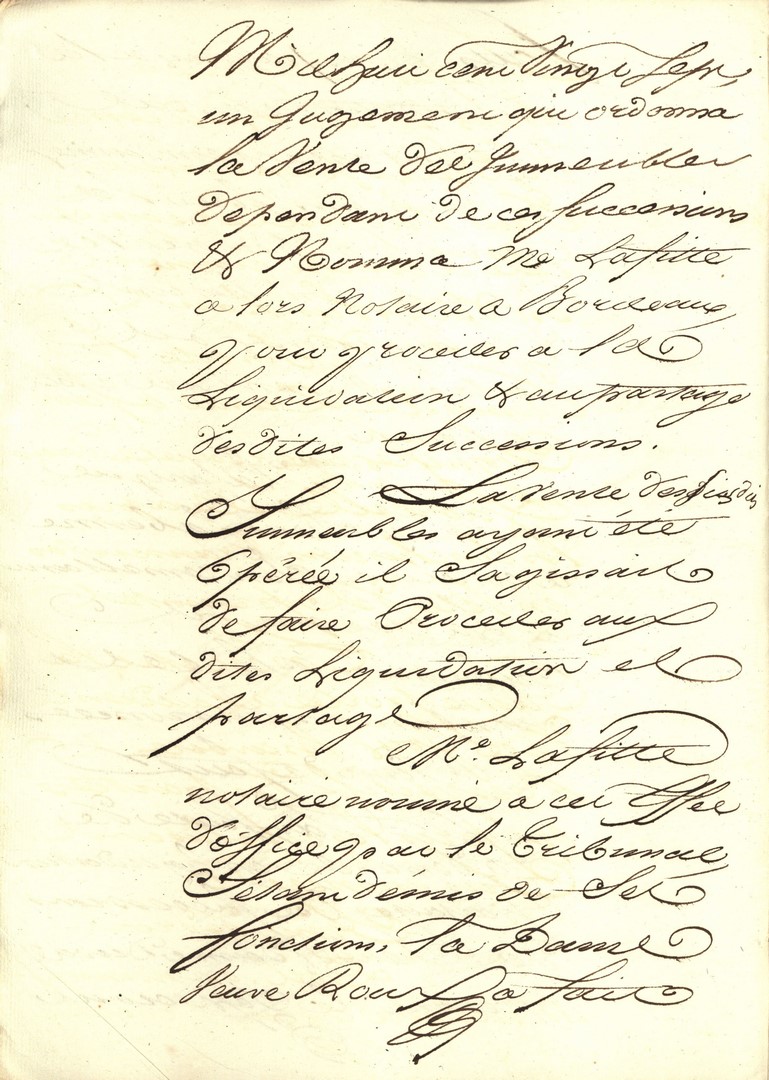 Mil huit cent Vingt Sept,
un Jugement qui ordonna
la Vente des Immeubles
dépendant de ces successions
& Nomma Me Lafitte
alors Notaire a Bordeaux,
pour proceder a la
Liquidation & au partage
desdites Successions.
La Vente des
Immeubles ayant été
Opérée il S'agissait
de faire Proceder aux
dites Liquidation et
partage
Me. Lafitte
notaire nommé a cet Effet
d'office par le Tribunal,
S'étant démis de Ses
fonctions, la Dame
Veuve Roux a fait